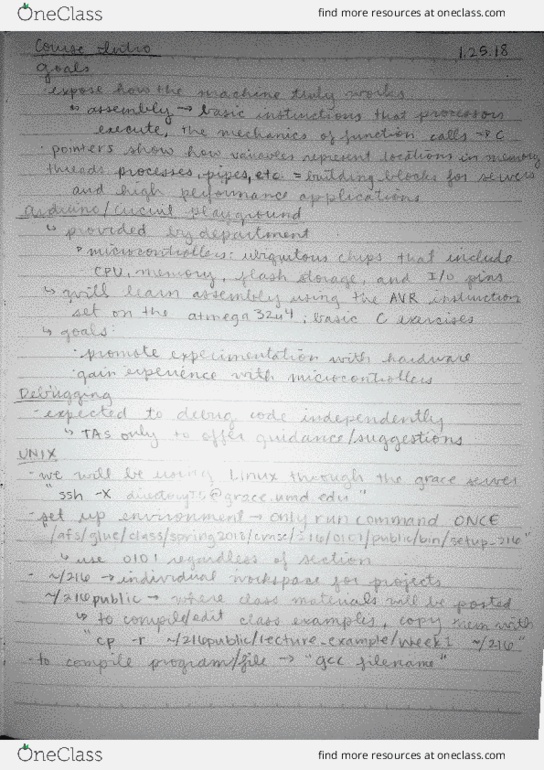 OneClass
find more resources at oneclass.com
Course Intro
1.25.18
goals
· expose how the machine truly works
↳ assembly → basic instructions that processors
execute, the mechanics of function calls → C
· pointers show how variables represent locations in memory
threads, processes, pipes, etc. = building blocks for servers
and high performance applications
Arduino/Circuit playground
↳ provided by department
· microcontrollers: ubiquitous chips that include
CPU, memory, flash storage, and I/O pins
↳ will learn assembly using the AVR instruction
set on the atmega 32u4; basic C exercises
↳ goals:
· promote experimentation with hardware
· gain experience with microcontrollers
Debugging
- expected to debug code independently
↳ TAs only to offer guidance/suggestions
UNIX
- we will be using Linux through the grace server
"ssh -X @grace.umd.edu"
- set up environment → only run command ONCE
/afs/glue/class/spring2018/cmsc/216/0101/public/bin/setup_216"
↳ use 0101 regardless of section
- ~/216 → individual workspace for projects
~/216public → where class materials will be posted
↳ to compile/edit class examples, copy them with
"cp -r ~/216public/lecture_example/week1 ~/216"
- to compile program/file → "gcc filename"
OneClass
find more resources at oneclass.com